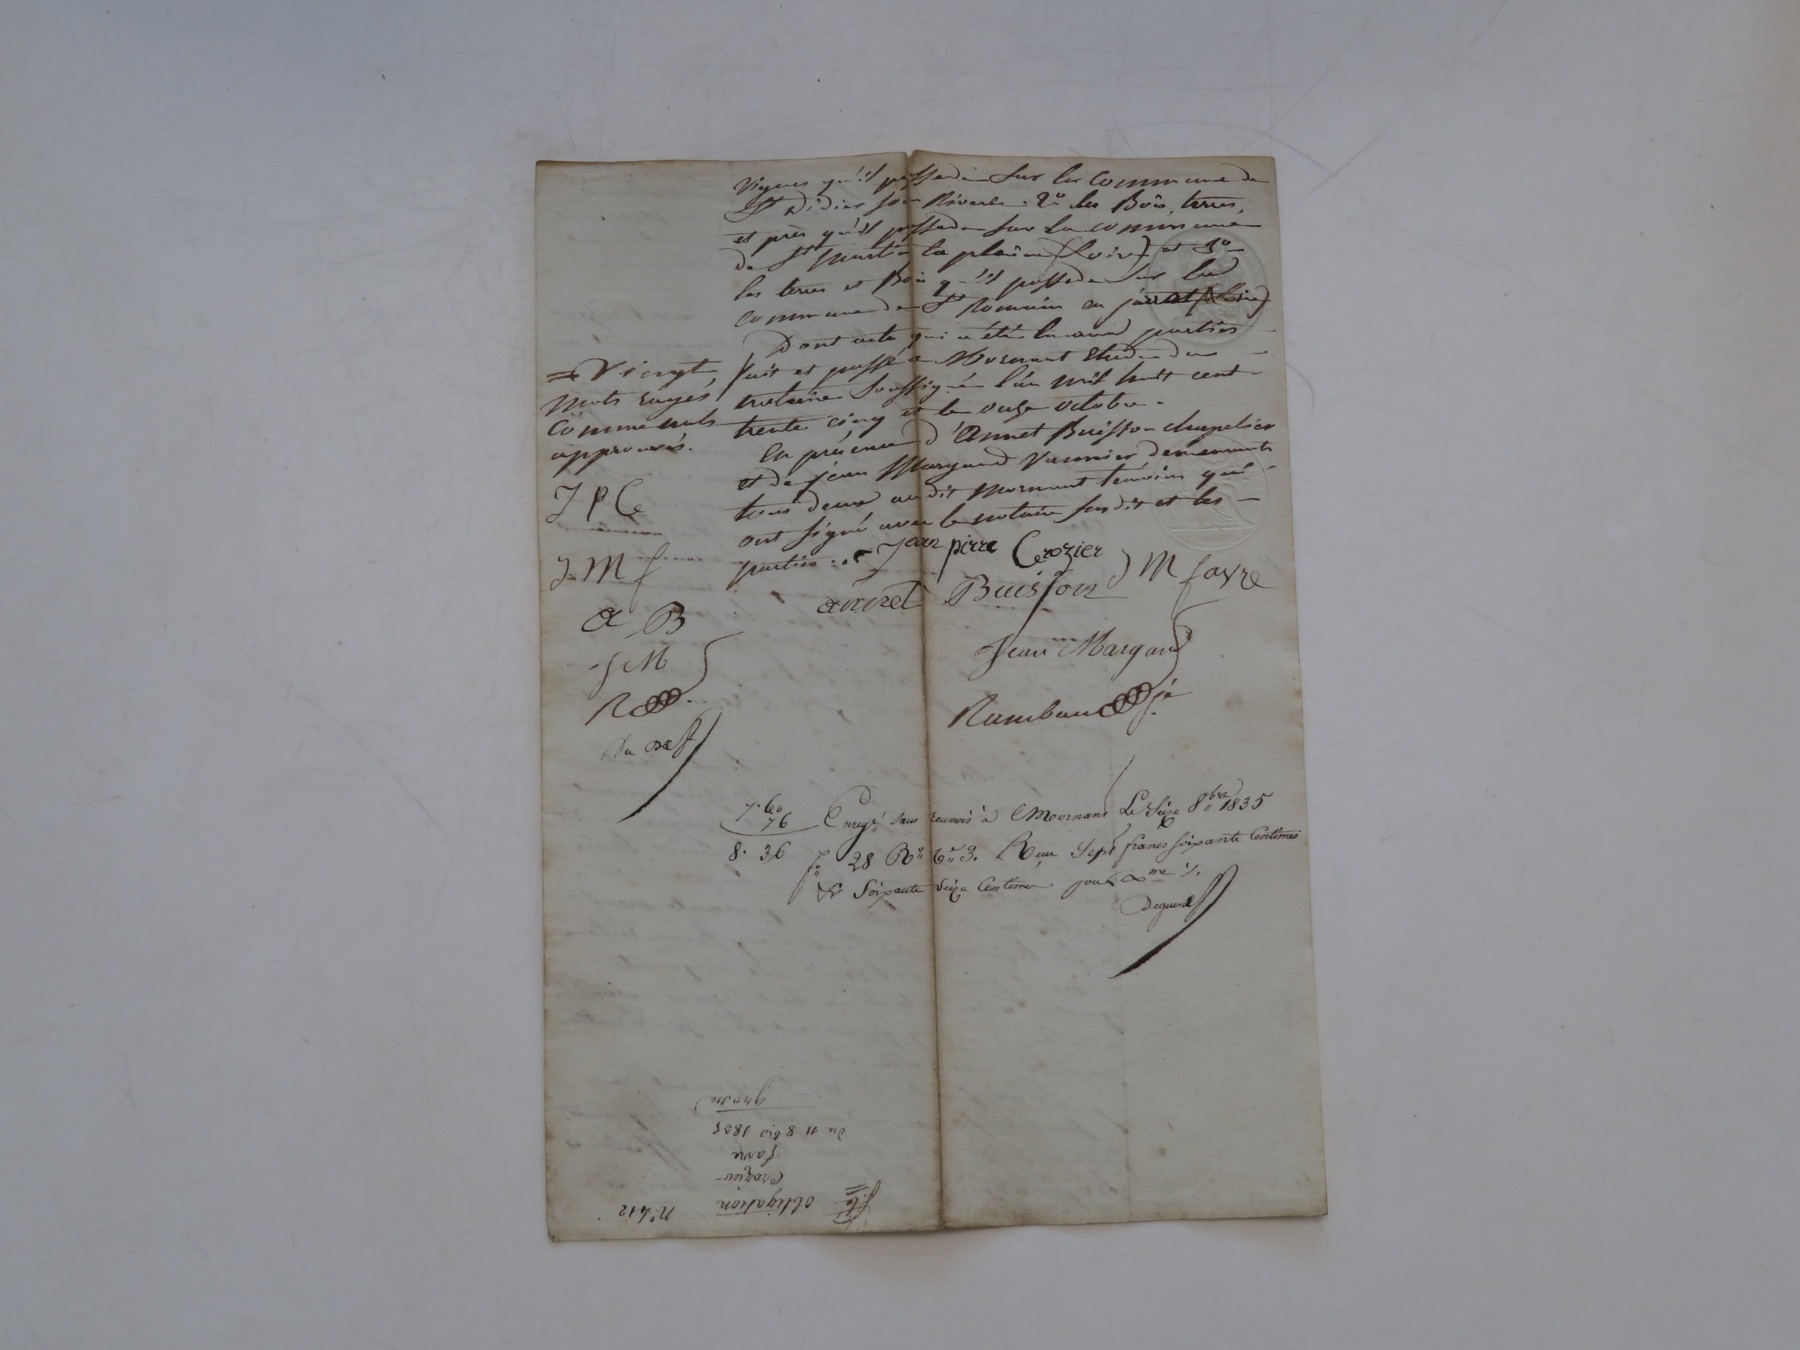 vignes qu'il possède sur la commune de
St Didier sous Riverie. 2° les Bois, terres,
et près qu'il possède sur la commune
de St Martin la plaine (Loire) et 3°
les terres et Bois qu'il possède sur la
commune de St Romain en jarrat (Loire)
Dont acte qui a été lu aux parties
fait et passé à Mornant Etude du
notaire soussigné l'an mil huit cent
trente cinq et le onze octobre.
En présence d'Annet Buisson chapelier
et de jean Margand Vannier demeurants
tous deux au dit Mornant témoins qui
ont signé avec le notaire susdit et les
parties.
= Vingt
mots rayés
comme nuls
approuvés.
J P C
J M f
a B
J M
R
Jean pierre Crozier
J M favre
annet Buisson
Jean Margand
Rambaud je
7. 60
76
8. 36
Enregé sans renvois à Mornant Le Seize 8bre 1835
fo 28 Ro Ce 3. Reçu Sept francs soixante Centimes
& Soixante Seize Centimes pour Dme
N° 412
obligation
crozier
favre
du 11 8bre 1835
grosse